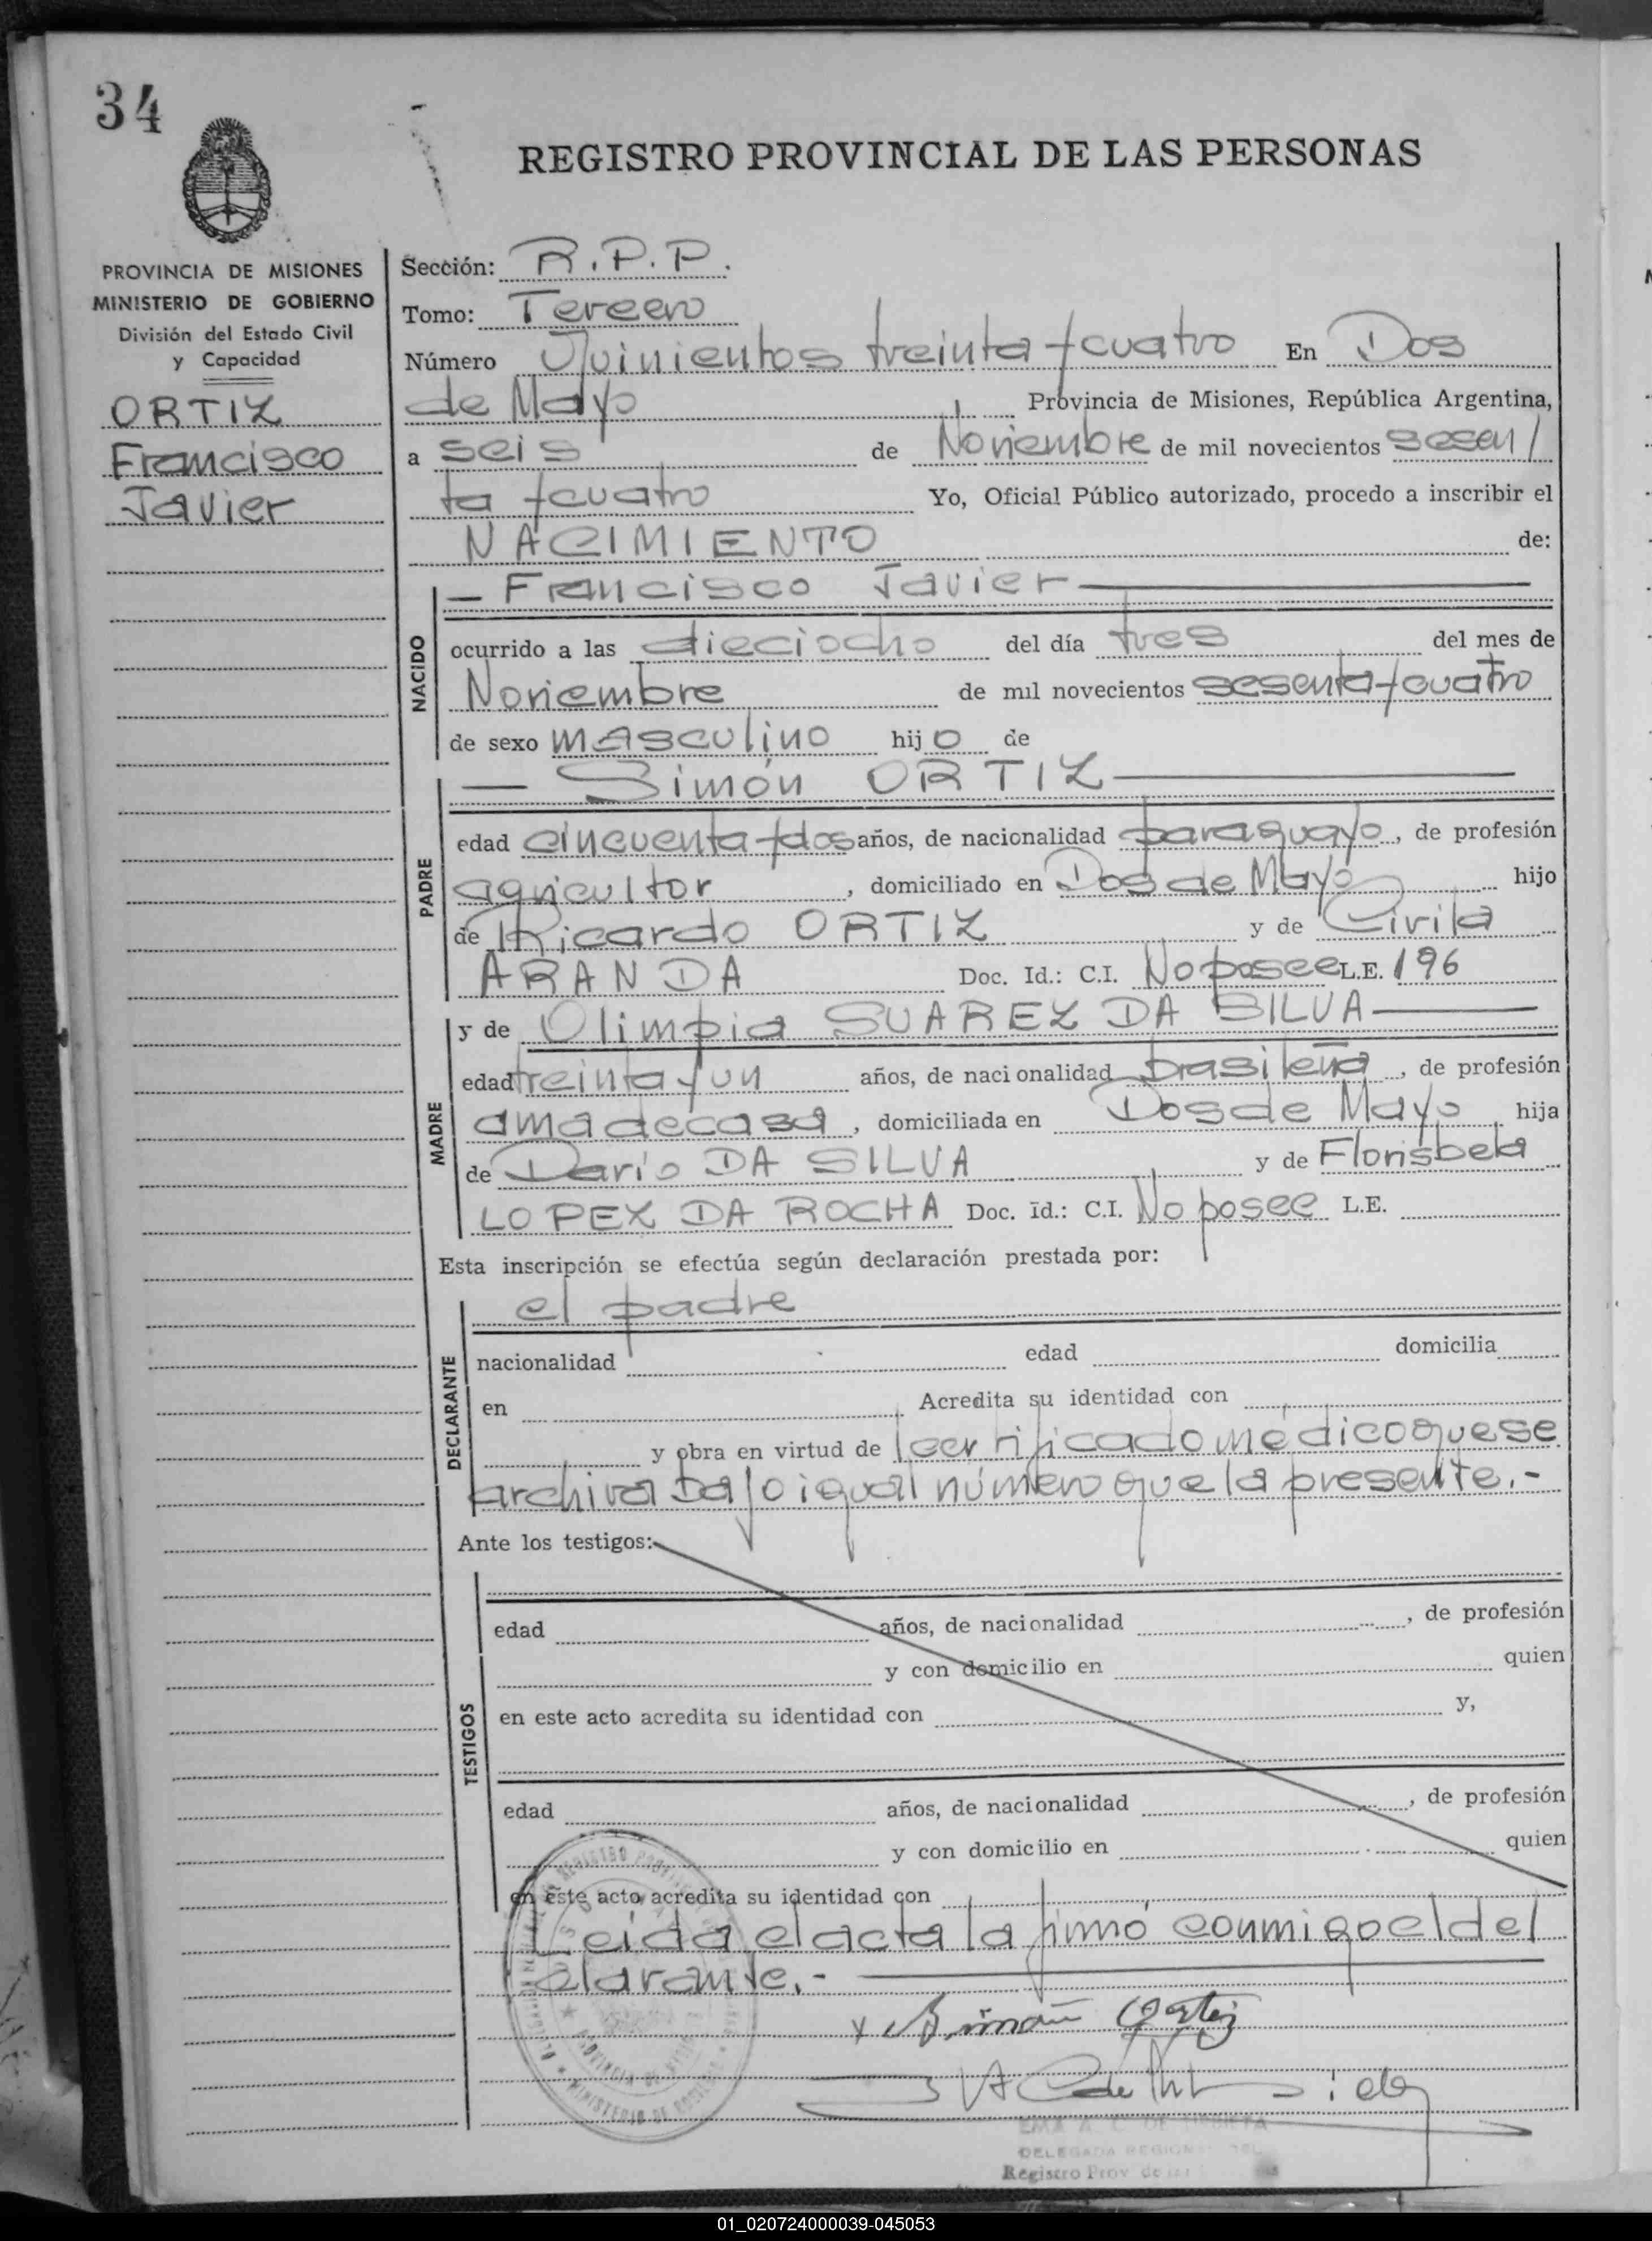 34
REGISTRO PROVINCIAL DE LAS PERSONAS
PROVINCIA DE MISIONES
MINISTERIO DE GOBIERNO
División del Estado Civil
y Capacidad
ORTIZ
Francisco
Javier
Sección: R.P.P.
Tomo: Tercero
Número Quinientos treinta y cuatro En Dos
de Mayo Provincia de Misiones, República Argentina,
a seis de Noviembre de mil novecientos sesen/
ta y cuatro Yo, Oficial Público autorizado, procedo a inscribir el
NACIMIENTO de:
— Francisco Javier —
NACIDO
ocurrido a las dieciocho del día tres del mes de
Noviembre de mil novecientos sesenta y cuatro
de sexo masculino hijo de
— Simón ORTIZ —
PADRE
edad cincuenta y dos años, de nacionalidad paraguayo, de profesión
agricultor, domiciliado en Dos de Mayo hijo
de Ricardo ORTIZ y de Civila
ARANDA Doc. Id.: C.I. No posee L.E. 196
MADRE
y de Olimpia SUAREZ DA SILVA —
edad treinta y un años, de nacionalidad brasileña, de profesión
ama de casa, domiciliada en Dos de Mayo hija
de Dario DA SILVA y de Florisbela
LOPEZ DA ROCHA Doc. Id.: C.I. No posee L.E.
Esta inscripción se efectúa según declaración prestada por:
DECLARANTE
el padre
nacionalidad edad domicilia
en Acredita su identidad con
y obra en virtud de certificado médico que se
archiva bajo igual número que la presente.-
Ante los testigos:
TESTIGOS
edad años, de nacionalidad , de profesión
y con domicilio en quien
en este acto acredita su identidad con y,
edad años, de nacionalidad , de profesión
y con domicilio en quien
en este acto acredita su identidad con
Leida el acta la firmó conmigo el de/
clarante.-
x Simón Ortiz
DELEGADA REGIONAL DEL
Registro Prov de las
01_020724000039-045053